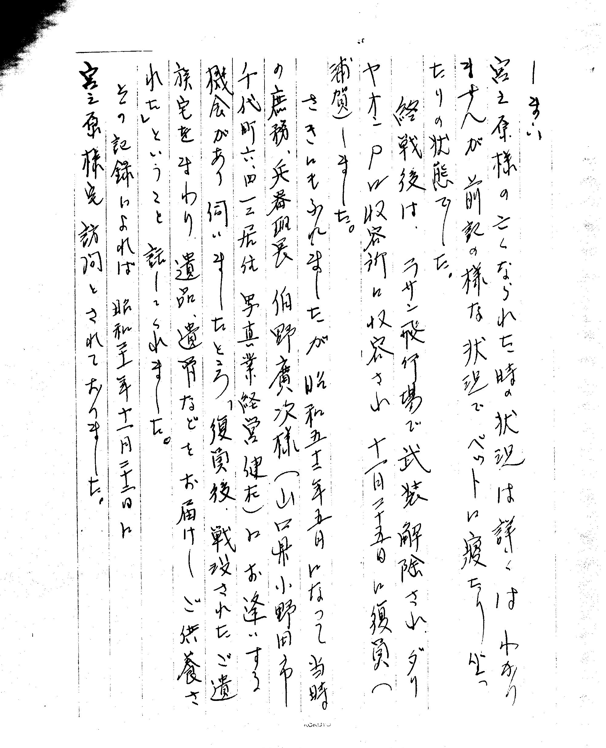 しまい
宮之原様の亡くなられた時の状況は詳くはわかり
ませんが前記の様な状況でベットに寝たり坐っ
たりの状態でした。
終戦後は、ラサン飛行場で武装解除され、ダリ
ヤオンPW収容所に収容され十一月二十五日に復員（
浦賀）しました。
さきにもふれましたが昭和五十二年五月になって当時
の庶務、兵器班長 伯野廣次様（山口県小野田市
千代町六の四一三居住 写真業経営健在）にお逢いする
機会があり伺いましたところ「復員後、戦没されたご遺
族宅をまわり、遺品、遺骨などをお届けしご供養さ
れた」ということを話してくれました。
その記録によれば昭和二十一年十一月二十二日に
宮之原様宅訪問とされておりました。